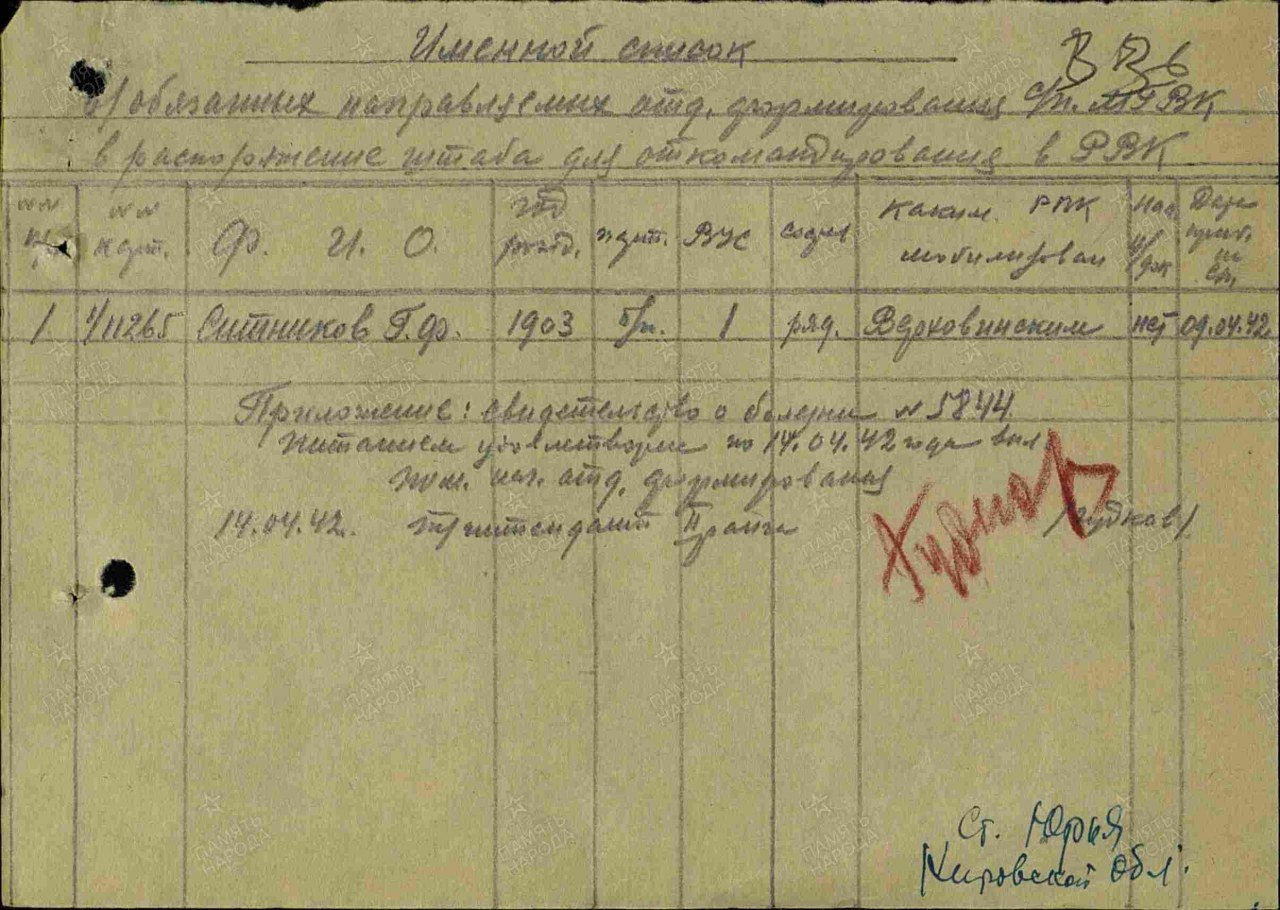 Именной список
В
в/обязанных направляемых отд. формирования с/п. МГВК
в распоряжение штаба для откомандирования в РВК
№№ №№ год каким РПК Нал. Дата
карт. Ф. И. О. рожд. парт. ВУС состав мобилизован в/док
1 1/11265 Ситников Г.Ф. 1903 б/п. 1 ряд. Верховинским нет 09.04.42
Приложение: свидетельство о болезни № 5844
Питанием удовлетворен по 14.04.42 года вкл
Пом. нач. отд. формирования
14.04.42. интендант II ранга /Гудков/
Ст. Юрья
Кировской Обл.
ПАМЯТЬ НАРОДА